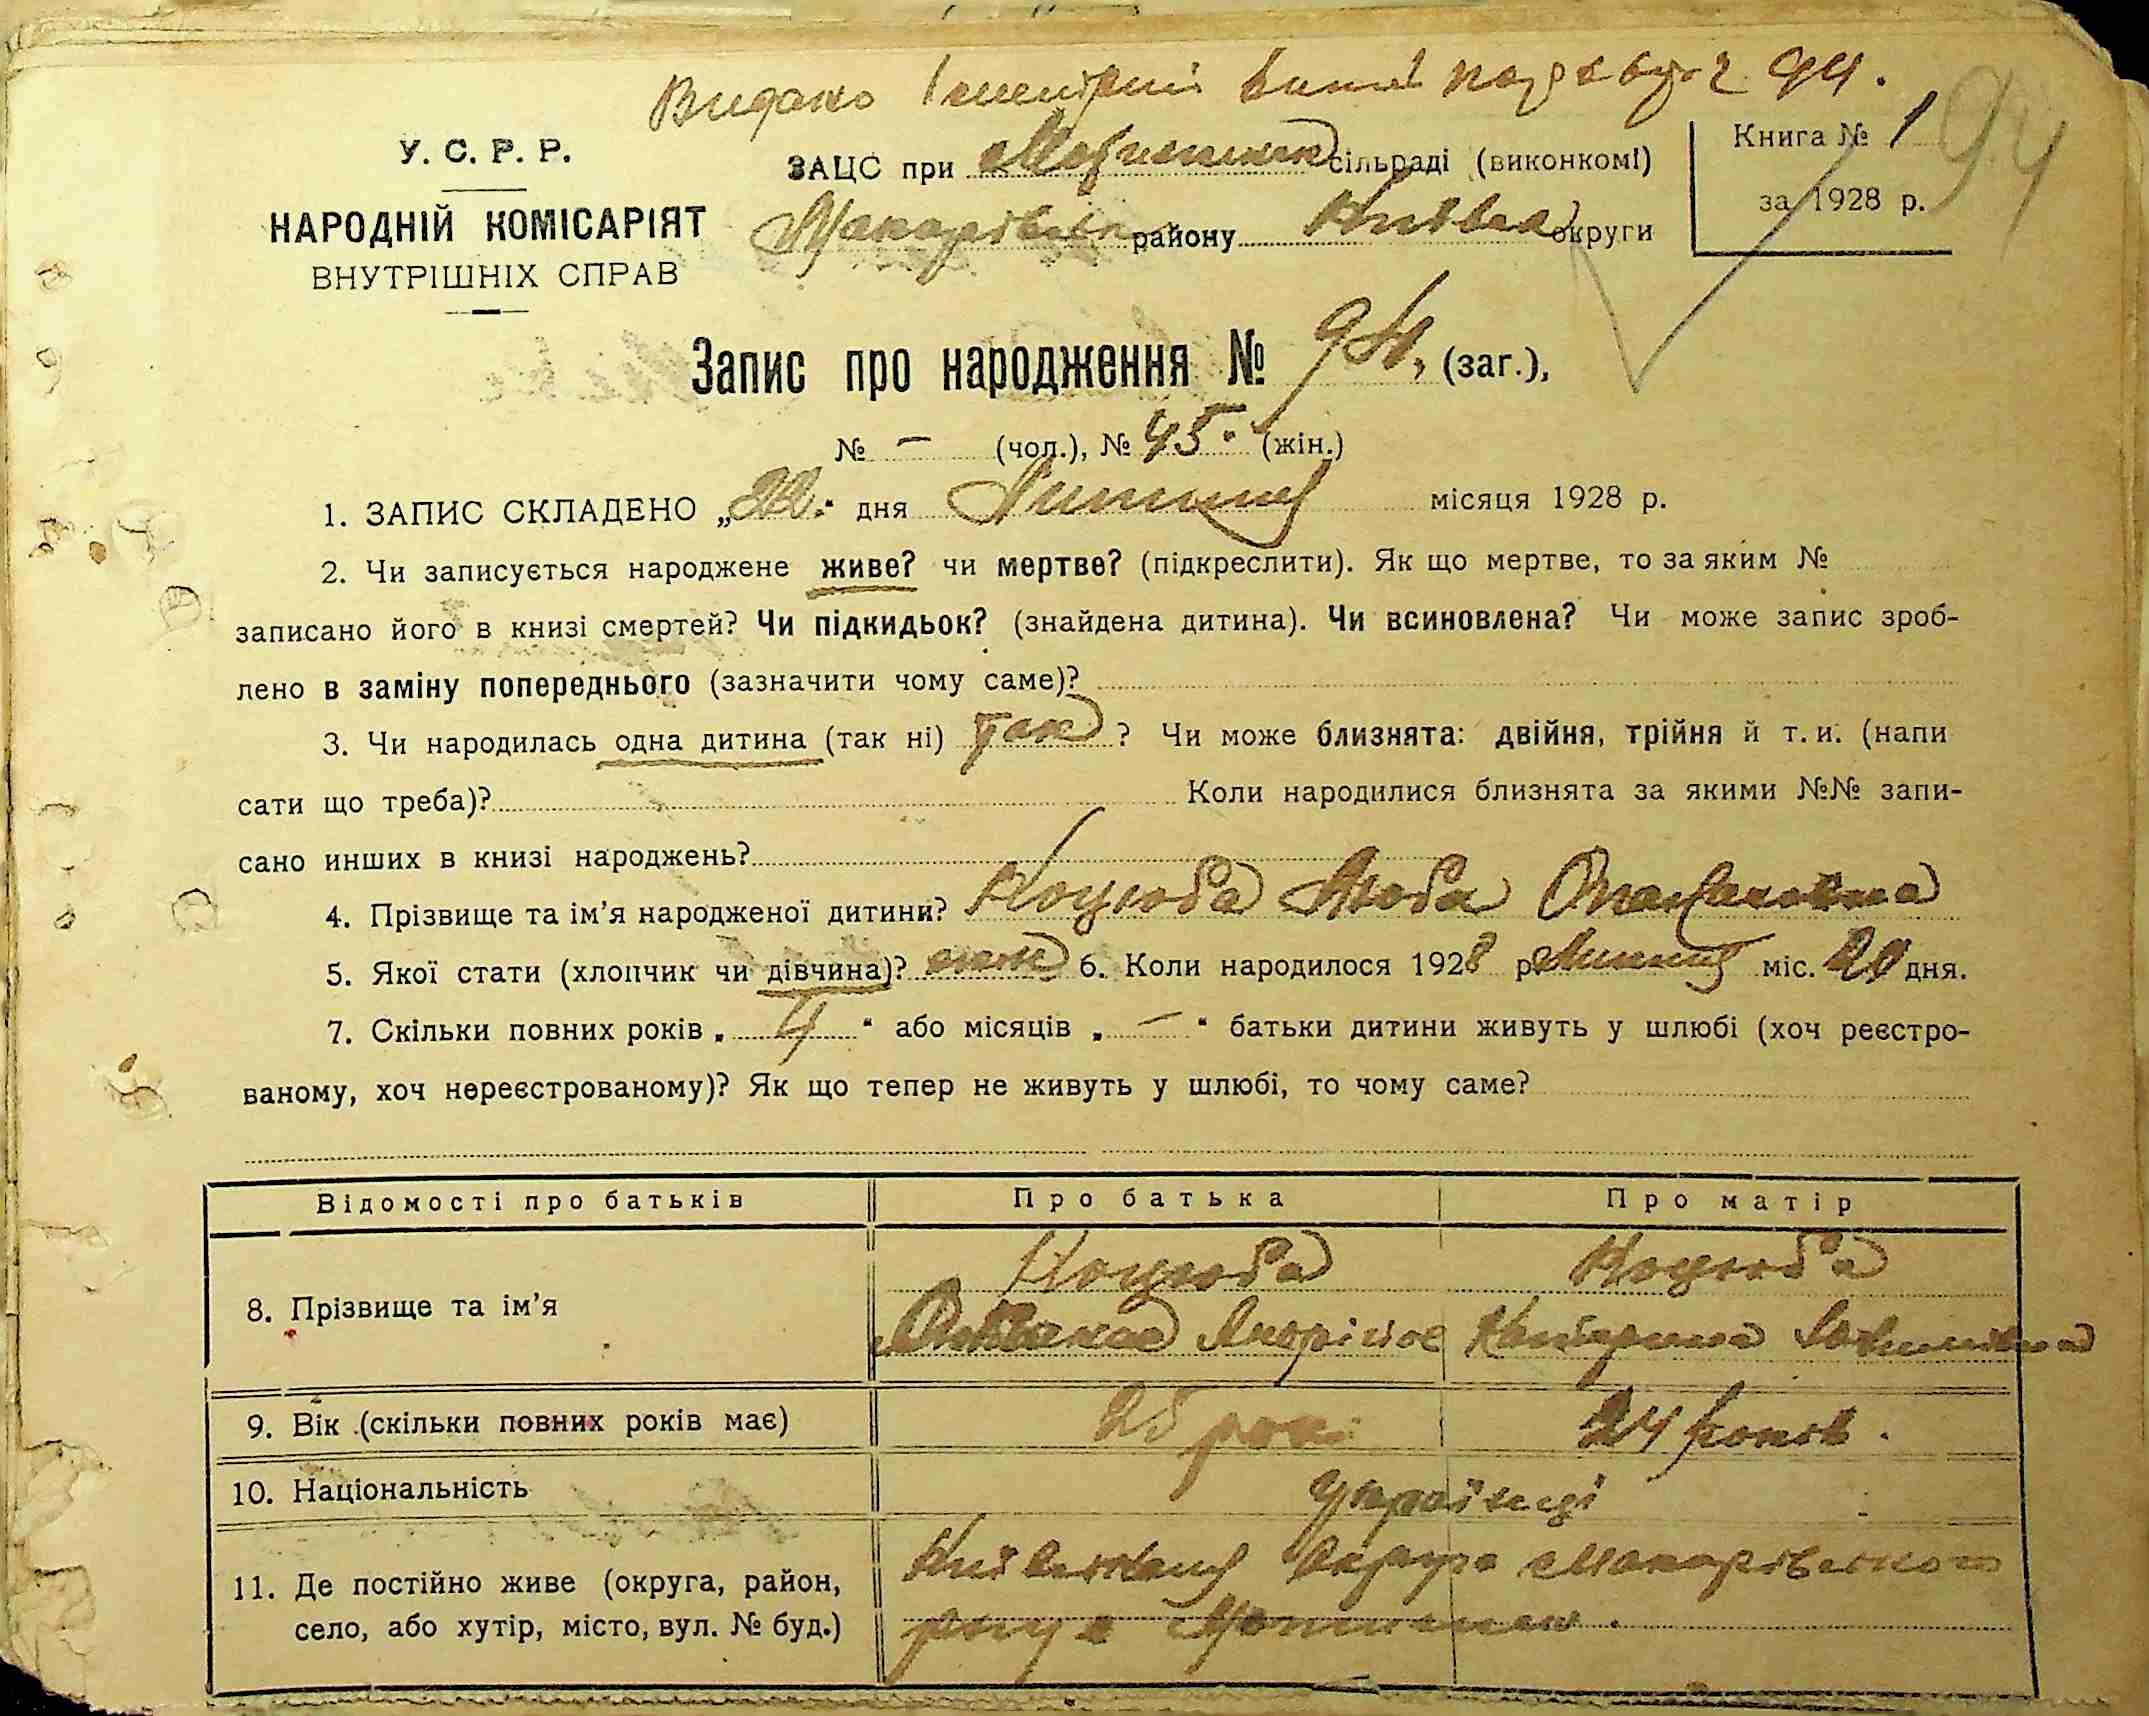 Видано
94
У. С. Р. Р.
НАРОДНІЙ КОМІСАРІЯТ
ВНУТРІШНІХ СПРАВ
ЗАЦС при сільраді (виконкомі)
Макарівськ району Київськ округи
Книга № 1
за 1928 р.
94
Запис про народження № 94, (заг.),
№ — (чол.), № 45. (жін.)
1. ЗАПИС СКЛАДЕНО „22." дня Липня місяця 1928 р.
2. Чи записується народжене живе? чи мертве? (підкреслити). Як що мертве, то за яким №
записано його в книзі смертей? Чи підкидьок? (знайдена дитина). Чи всиновлена? Чи може запис зроб-
лено в заміну попереднього (зазначити чому саме)?
3. Чи народилась одна дитина (так ні) так ? Чи може близнята: двійня, трійня й т. и. (напи
сати що треба)? Коли народилися близнята за якими №№ запи-
сано инших в книзі народжень?
4. Прізвище та ім'я народженої дитини? Коцюба Люба
5. Якої стати (хлопчик чи дівчина)? 6. Коли народилося 1928 р. Липня міс. 20 дня.
7. Скільки повних років „ 4 " або місяців „ — " батьки дитини живуть у шлюбі (хоч реєстро-
ваному, хоч нереєстрованому)? Як що тепер не живуть у шлюбі, то чому саме?
Відомості про батьків Про батька Про матір
8. Прізвище та ім'я Коцюба Коцюба
Катерина
9. Вік (скільки повних років має) 25 рок. 24 років.
10. Національність Українці
11. Де постійно живе (округа, район, Київська округа Макарівського
село, або хутір, місто, вул. № буд.)